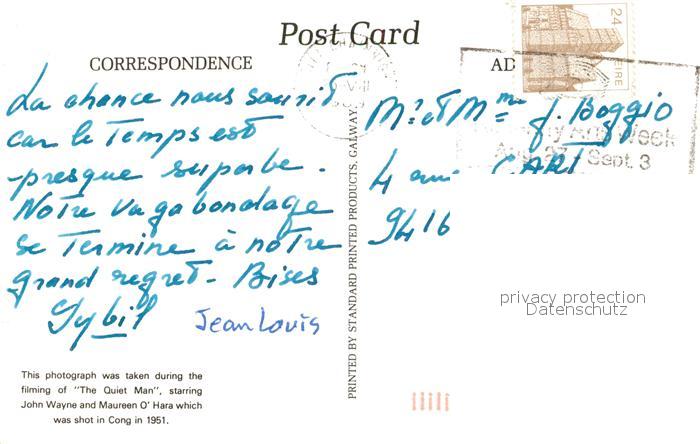 Post Card
CORRESPONDENCE
AD
24
EIRE
La chance nous sourit
car le Temps est
presque superbe.
Notre vagabondage
se Termine à notre
grand regret - Bises
Sybil Jean Louis
Mr et Mme J. Boggio
Week
Sept. 3
4
9416
PRINTED BY STANDARD PRINTED PRODUCTS, GALWAY.
privacy protection
Datenschutz
This photograph was taken during the
filming of "The Quiet Man", starring
John Wayne and Maureen O' Hara which
was shot in Cong in 1951.